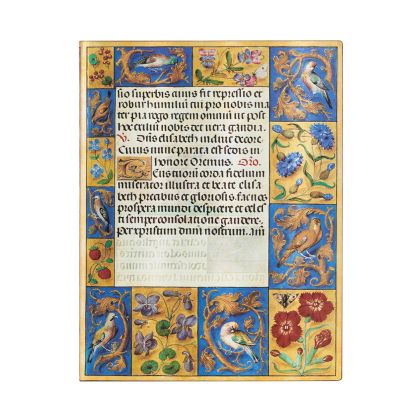 sio superbis cuius fit repressio et
robur humilium cui pro nobis ma
ter pia rogo regem omnium ut post
hoc exilium nobis det vera gaudia.
V. elisabeth induit decore.
Cuius nunc parata est sedis in
honore Oremus. Oro.
corda fidelium
miserator illustra et beate elisa
beth precibus et gloriosis fac nos
prospera mundi despicere et celes
ti semper consolatione gaudere.
Per xpristum dnm nostrum. Am